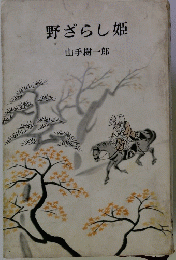 野ざらし姫
山手樹一郎